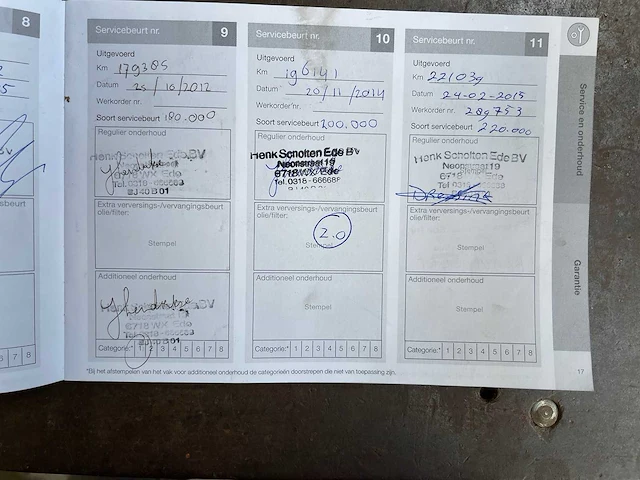 8
Servicebeurt nr. 9
Uitgevoerd
Km 179385
Datum 25/10/2012
Werkorder nr.
Soort servicebeurt 180.000
Regulier onderhoud
Henk Scholten Ede BV
6718 WX Ede
Tel. 0318 - 666688
BJ 40 B 01
Extra verversings-/vervangingsbeurt
olie/filter:
Stempel
Additioneel onderhoud
6718 WX Ede
BJ 40 B 01
Categorie:* 1 2 3 4 5 6 7 8
Servicebeurt nr. 10
Uitgevoerd
Km 196141
Datum 20/11/2014
Werkorder nr.
Soort servicebeurt 200.000
Regulier onderhoud
Henk Scholten Ede BV
Neonstraat 19
6718 WX Ede
Tel. 0318 - 666688
Extra verversings-/vervangingsbeurt
olie/filter:
2.0
Stempel
Additioneel onderhoud
Stempel
Categorie:* 1 2 3 4 5 6 7 8
Servicebeurt nr. 11
Uitgevoerd
Km 221039
Datum 24-02-2015
Werkorder nr. 289753
Soort servicebeurt 220.000
Regulier onderhoud
Henk Scholten Ede BV
Neonstraat 19
6718 Ede
Tel. 0318
Extra verversings-/vervangingsbeurt
olie/filter:
Stempel
Additioneel onderhoud
Stempel
Categorie:* 1 2 3 4 5 6 7 8
5 6 7 8
*Bij het afstempelen van het vak voor additioneel onderhoud de categorieën doorstrepen die niet van toepassing zijn.
17
Service en onderhoud
Garantie